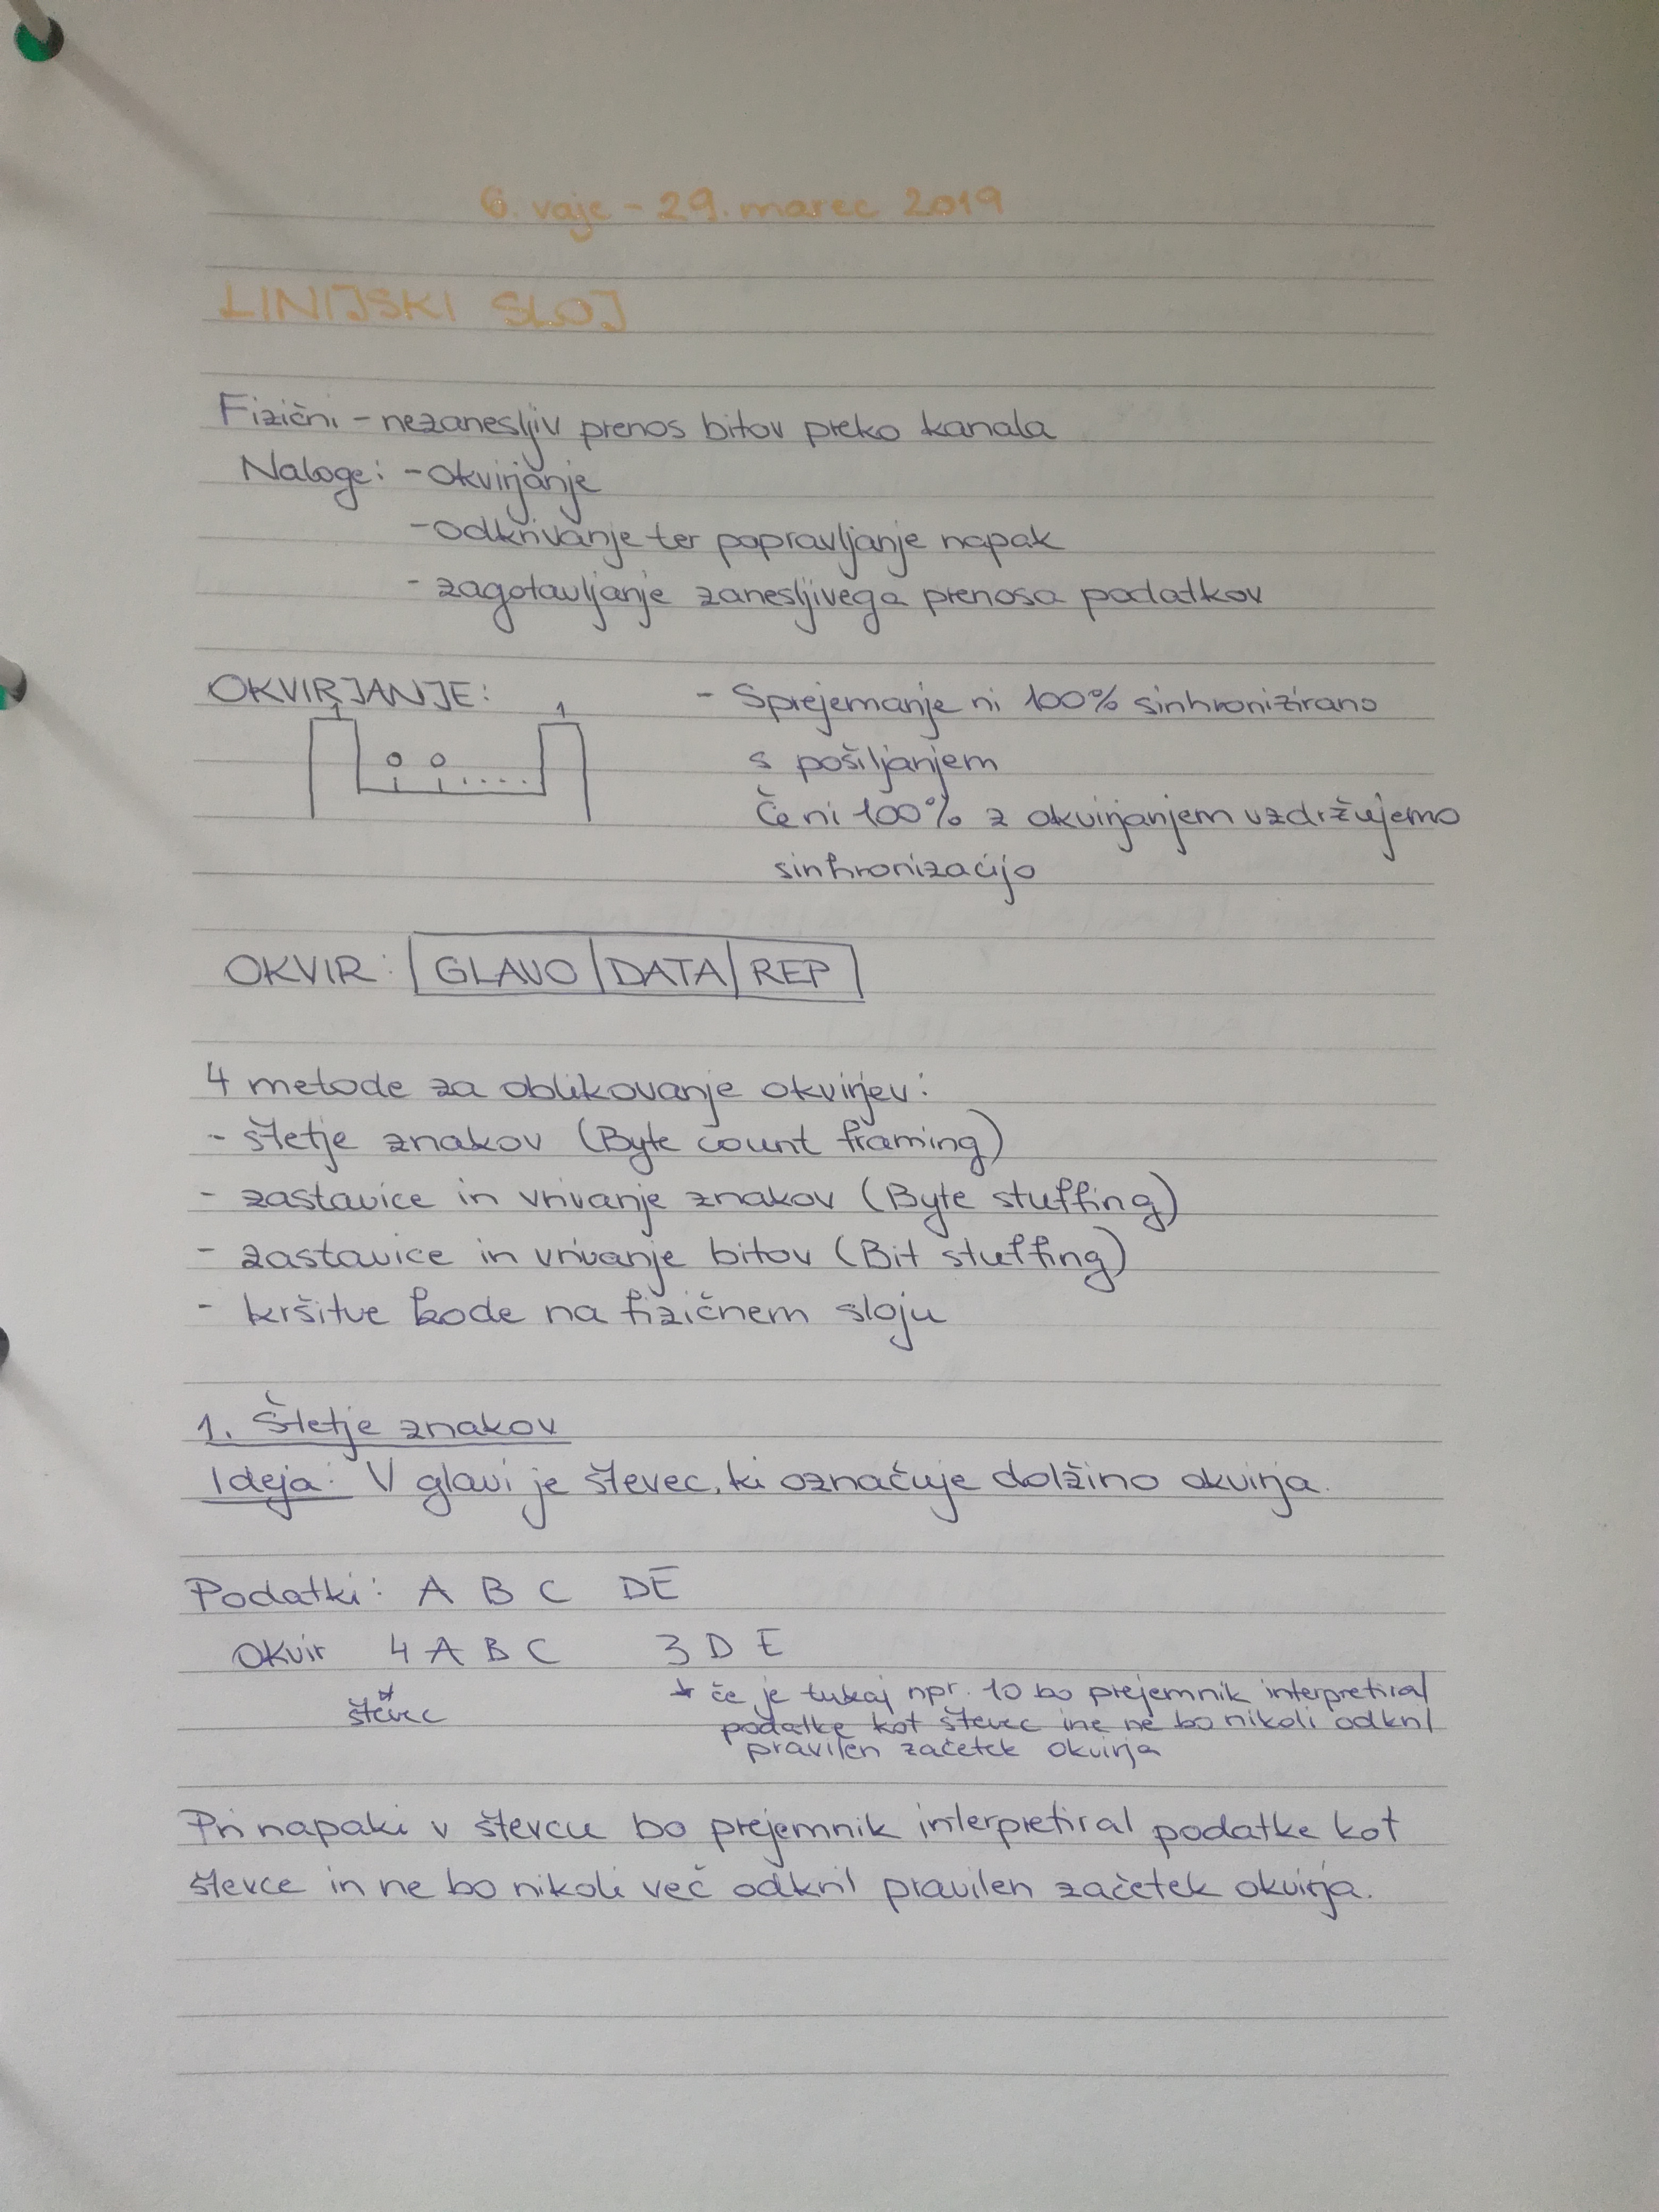 6. vaje - 29. marec 2019
LINIJSKI SLOJ
Fizični - nezanesljiv prenos bitov preko kanala
Naloge: - okvirjanje
- odkrivanje ter popravljanje napak
- zagotavljanje zanesljivega prenosa podatkov
OKVIRJANJE:
1 0 0 ..... 1
- Sprejemanje ni 100% sinhronizirano
s pošiljanjem
Če ni 100% z okvirjanjem vzdržujemo
sinhronizacijo
OKVIR: | GLAVO | DATA | REP |
4 metode za oblikovanje okvirjev:
- štetje znakov (Byte count framing)
- zastavice in vrivanje znakov (Byte stuffing)
- zastavice in vrivanje bitov (Bit stuffing)
- kršitve kode na fizičnem sloju
1. Štetje znakov
Ideja: V glavi je števec, ki označuje dolžino okvirja.
Podatki: A B C DE
Okvir 4 A B C 3 D E
števec
* če je tukaj npr. 10 bo prejemnik interpretiral
podatke kot števec ine ne bo nikoli odkril
pravilen začetek okvirja
Pri napaki v števcu bo prejemnik interpretiral podatke kot
števce in ne bo nikoli več odkril pravilen začetek okvirja.